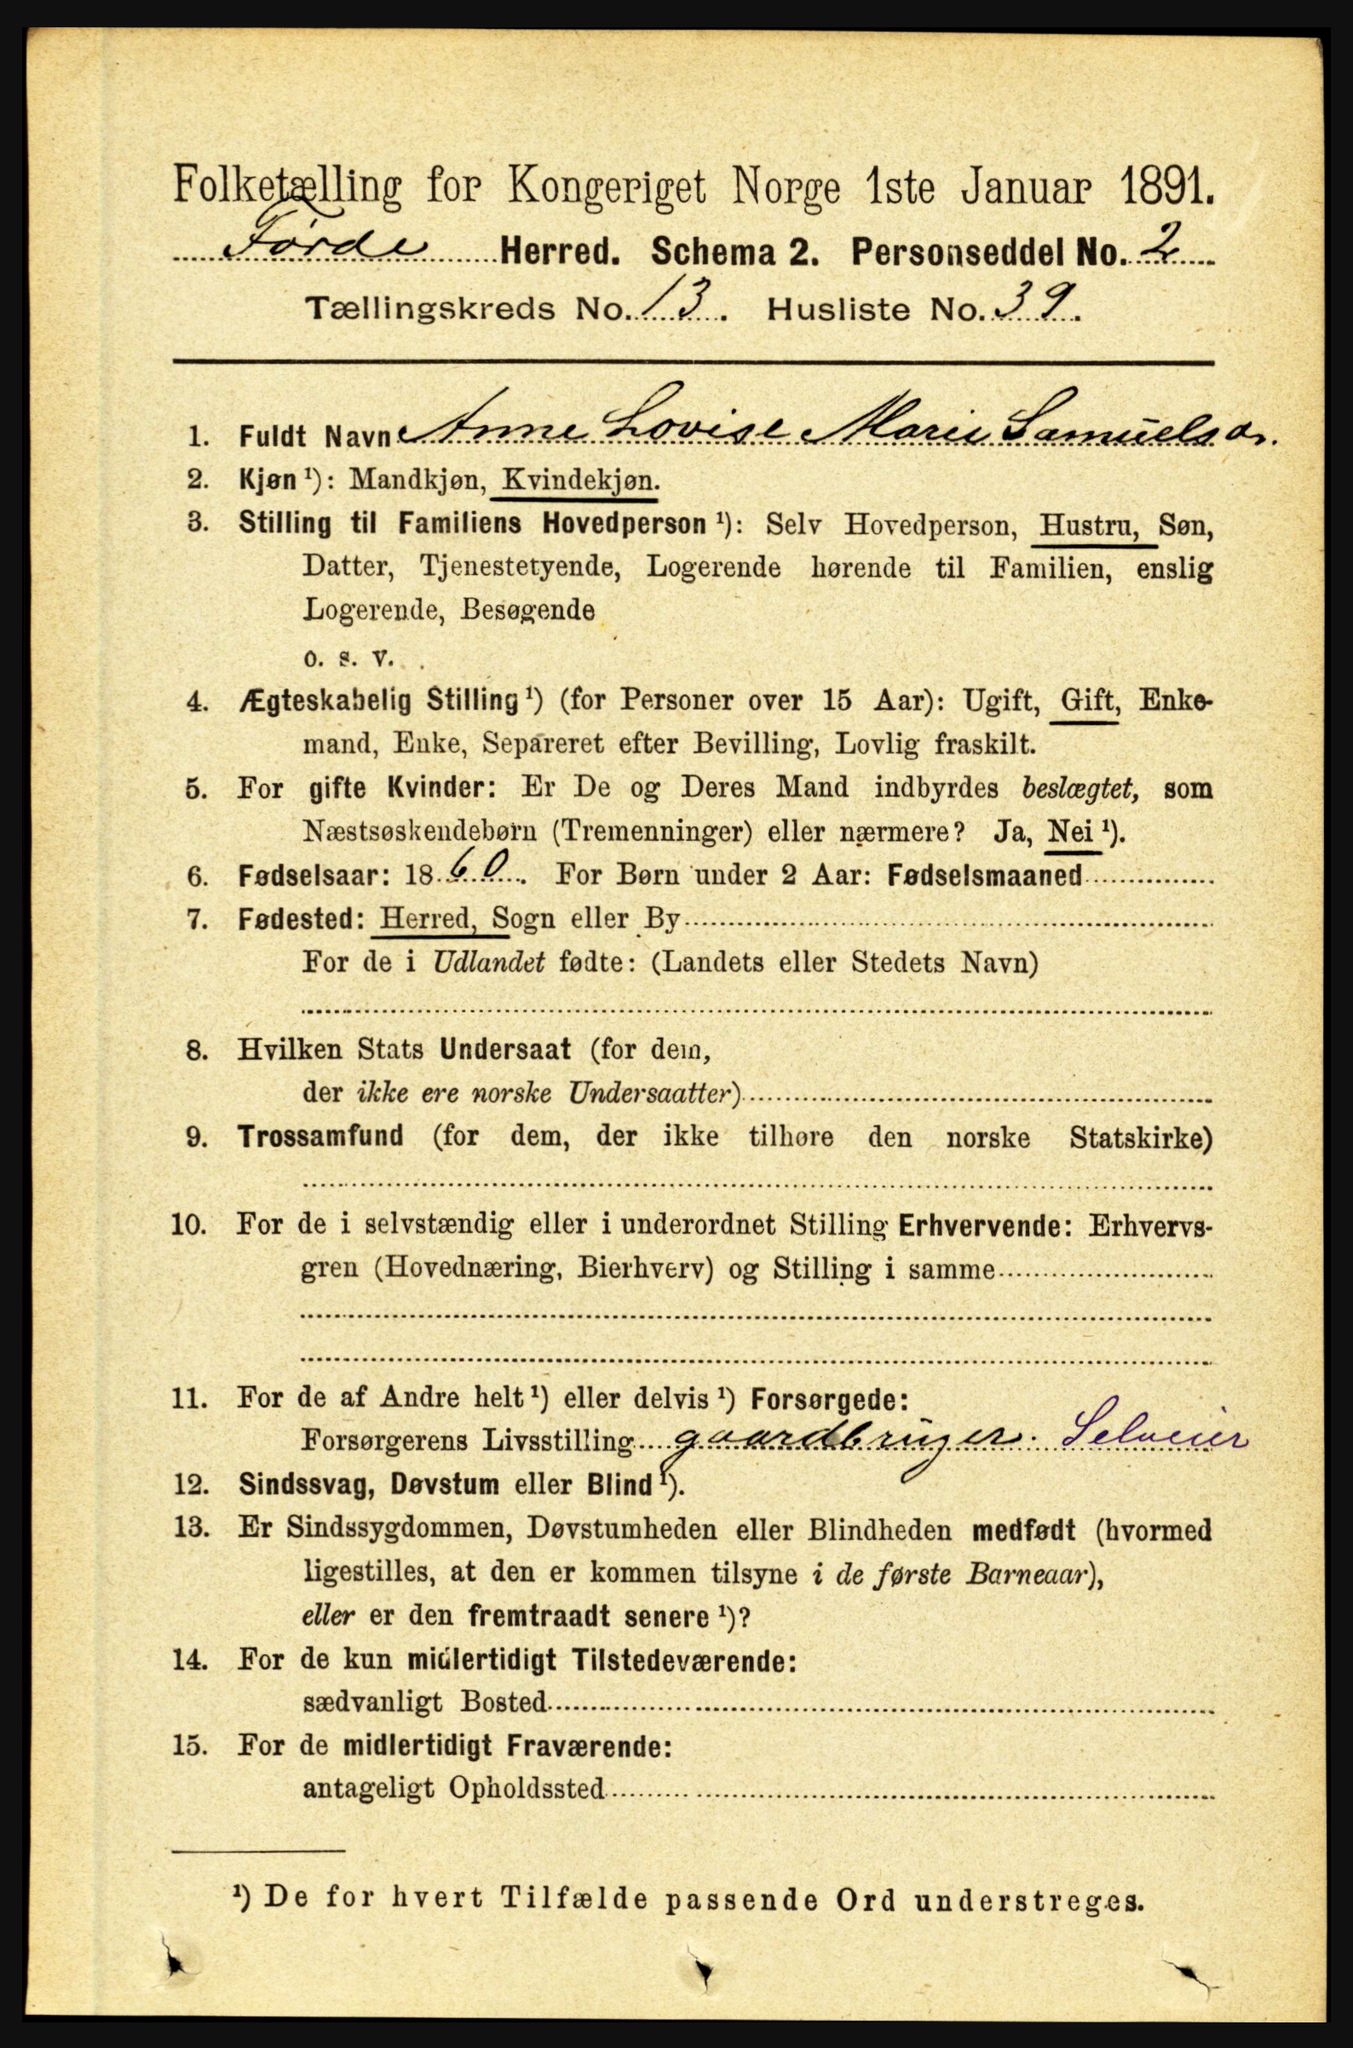 Folketælling for Kongeriget Norge 1ste Januar 1891.
Førde Herred. Schema 2. Personseddel No. 2
Tællingskreds No. 13. Husliste No. 39.
1. Fuldt Navn Anne Lovise Marie Samuelsdr.
2. Kjøn ¹): Mandkjøn, Kvindekjøn.
3. Stilling til Familiens Hovedperson ¹): Selv Hovedperson, Hustru, Søn,
Datter, Tjenestetyende, Logerende hørende til Familien, enslig
Logerende, Besøgende
o. s. v.
4. Ægteskabelig Stilling ¹) (for Personer over 15 Aar): Ugift, Gift, Enke-
mand, Enke, Separeret efter Bevilling, Lovlig fraskilt.
5. For gifte Kvinder: Er De og Deres Mand indbyrdes beslægtet, som
Næstsøskendebørn (Tremenninger) eller nærmere? Ja, Nei ¹).
6. Fødselsaar: 1860. For Børn under 2 Aar: Fødselsmaaned
7. Fødested: Herred, Sogn eller By
For de i Udlandet fødte: (Landets eller Stedets Navn)
8. Hvilken Stats Undersaat (for dem,
der ikke ere norske Undersaatter)
9. Trossamfund (for dem, der ikke tilhøre den norske Statskirke)
10. For de i selvstændig eller i underordnet Stilling Erhvervende: Erhvervs-
gren (Hovednæring, Bierhverv) og Stilling i samme
11. For de af Andre helt ¹) eller delvis ¹) Forsørgede:
Forsørgerens Livsstilling gaardbruger. Selveier
12. Sindssvag, Døvstum eller Blind ¹).
13. Er Sindssygdommen, Døvstumheden eller Blindheden medfødt (hvormed
ligestilles, at den er kommen tilsyne i de første Barneaar),
eller er den fremtraadt senere ¹)?
14. For de kun midlertidigt Tilstedeværende:
sædvanligt Bosted
15. For de midlertidigt Fraværende:
antageligt Opholdssted
¹) De for hvert Tilfælde passende Ord understreges.